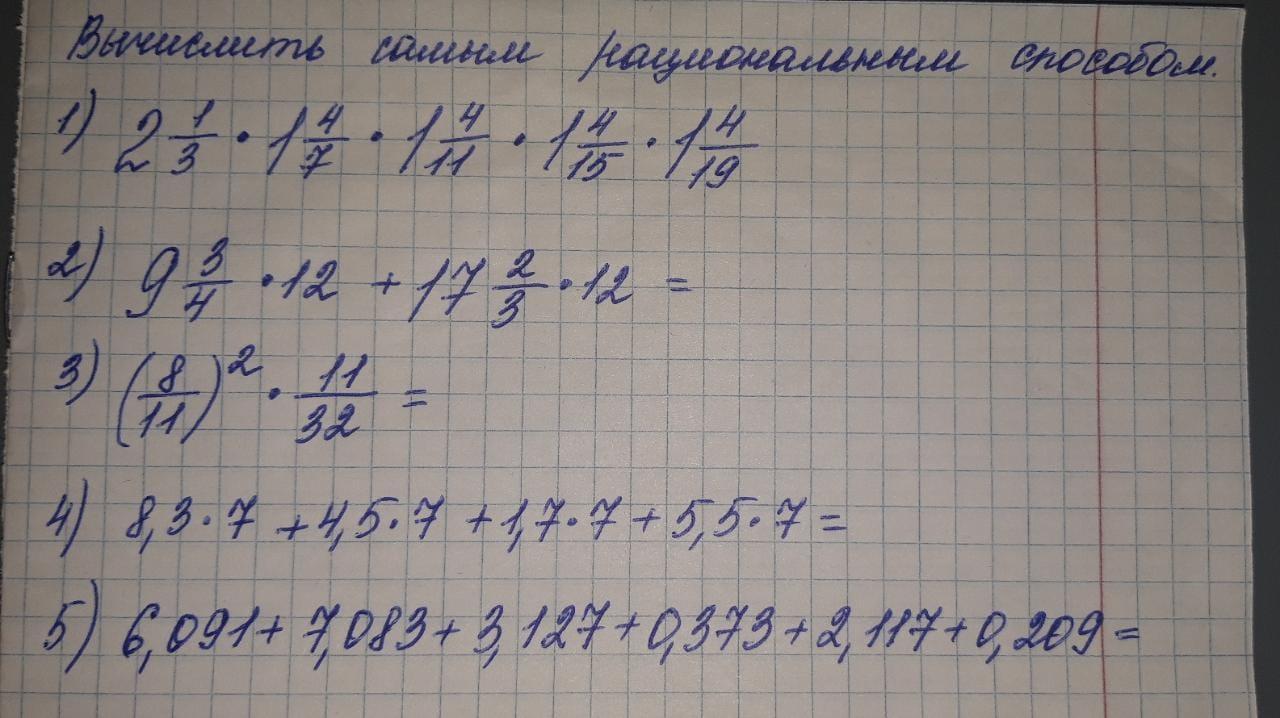 Вычислить самым рациональным способом.
1) 2 1/3 · 1 4/7 · 1 4/11 · 1 4/15 · 1 4/19
2) 9 3/4 · 12 + 17 2/3 · 12 =
3) (8/11)² · 11/32 =
4) 8,3 · 7 + 4,5 · 7 + 1,7 · 7 + 5,5 · 7 =
5) 6,091 + 7,083 + 3,127 + 0,373 + 2,117 + 0,209 =